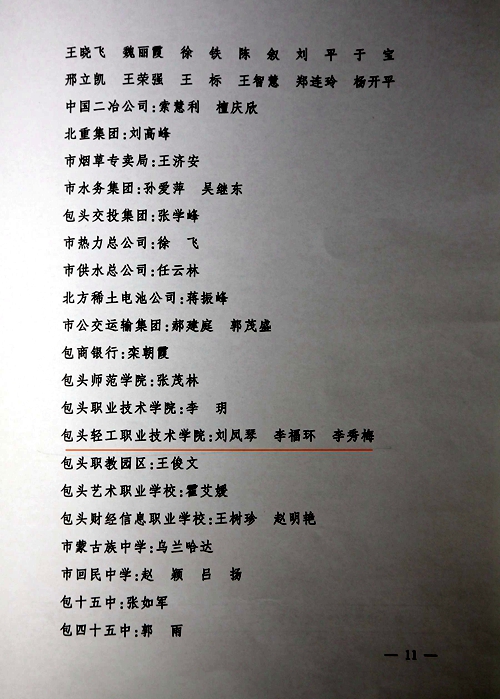 王晓飞 魏丽霞 徐 铁 陈 叙 刘 平 于 宝
邢立凯 王荣强 王 标 王智慧 郑连玲 杨开平
中国二冶公司:索慧利 檀庆欣
北重集团:刘高峰
市烟草专卖局:王济安
市水务集团:孙爱萍 吴继东
包头交投集团:张学峰
市热力总公司:徐 飞
市供水总公司:任云林
北方稀土电池公司:蒋振峰
市公交运输集团:郝建庭 郭茂盛
包商银行:栾朝霞
包头师范学院:张茂林
包头职业技术学院:李 玥
包头轻工职业技术学院:刘凤琴 李福环 李秀梅
包头职教园区:王俊文
包头艺术职业学校:霍艾媛
包头财经信息职业学校:王树珍 赵明艳
市蒙古族中学:乌兰哈达
市回民中学:赵 颖 吕 扬
包十五中:张如军
包四十五中:郭 雨
— 11 —